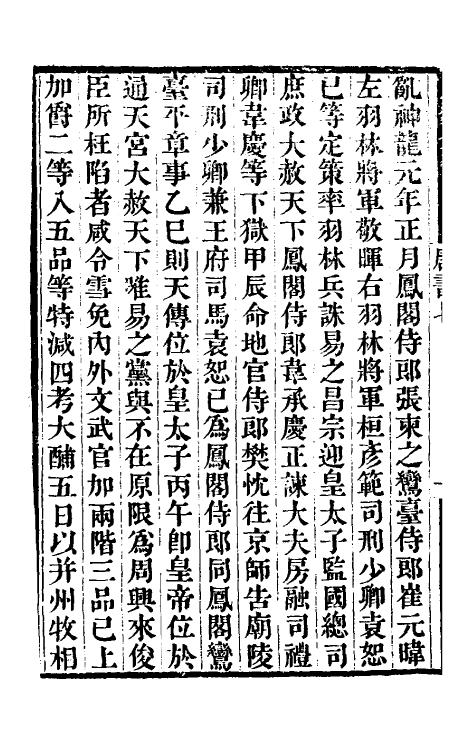 亂神龍元年正月鳳閣侍郎張柬之鸞臺侍郎崔元暐
左羽林將軍敬暉右羽林將軍桓彥範司刑少卿袁恕
已等定策率羽林兵誅易之昌宗迎皇太子監國總司
庶政大赦天下鳳閣侍郎韋承慶正諫大夫房融司禮
卿韋慶等下獄甲辰命地官侍郎樊忱往京師告廟陵
司刑少卿兼王府司馬袁恕已為鳳閣侍郎同鳳閣鸞
臺平章事乙巳則天傳位於皇太子丙午即皇帝位於
通天宮大赦天下唯易之黨與不在原限為周興來俊
臣所枉陷者咸令雪免內外文武官加兩階三品已上
加爵二等入五品等特減四考大酺五日以并州牧相